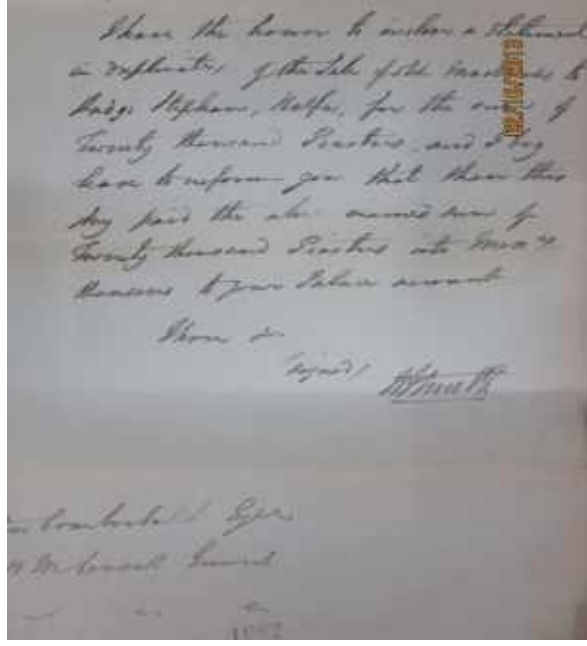 I have the honor to inclose a Statement
in duplicate, of the Sale of old
Hadji Stephan, Kalfa, for the sum of
Twenty thousand Piastres, and I beg
leave to inform you that I have this
day paid the above named sum of
Twenty thousand Piastres into
Hansons to your Salary account
I have &
(signed)
Esqre
H M Consul General